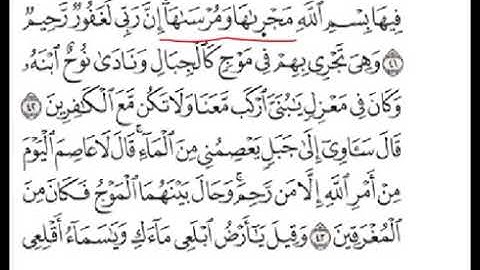 فِيهَا بِسْمِ ٱللَّهِ مَجْر۪ىٰهَا وَمُرْسَىٰهَآ إِنَّ رَبِّى لَغَفُورٌ رَّحِيمٌ
٤١ وَهِىَ تَجْرِى بِهِمْ فِى مَوْجٍ كَٱلْجِبَالِ وَنَادَىٰ نُوحٌ ٱبْنَهُۥ
وَكَانَ فِى مَعْزِلٍ يَٰبُنَىَّ ٱرْكَب مَّعَنَا وَلَا تَكُن مَّعَ ٱلْكَٰفِرِينَ ٤٢
قَالَ سَـَٔاوِىٓ إِلَىٰ جَبَلٍ يَعْصِمُنِى مِنَ ٱلْمَآءِ ۚ قَالَ لَا عَاصِمَ ٱلْيَوْمَ
مِنْ أَمْرِ ٱللَّهِ إِلَّا مَن رَّحِمَ ۚ وَحَالَ بَيْنَهُمَا ٱلْمَوْجُ فَكَانَ مِنَ
ٱلْمُغْرَقِينَ ٤٣ وَقِيلَ يَٰٓأَرْضُ ٱبْلَعِى مَآءَكِ وَيَٰسَمَآءُ أَقْلِعِى